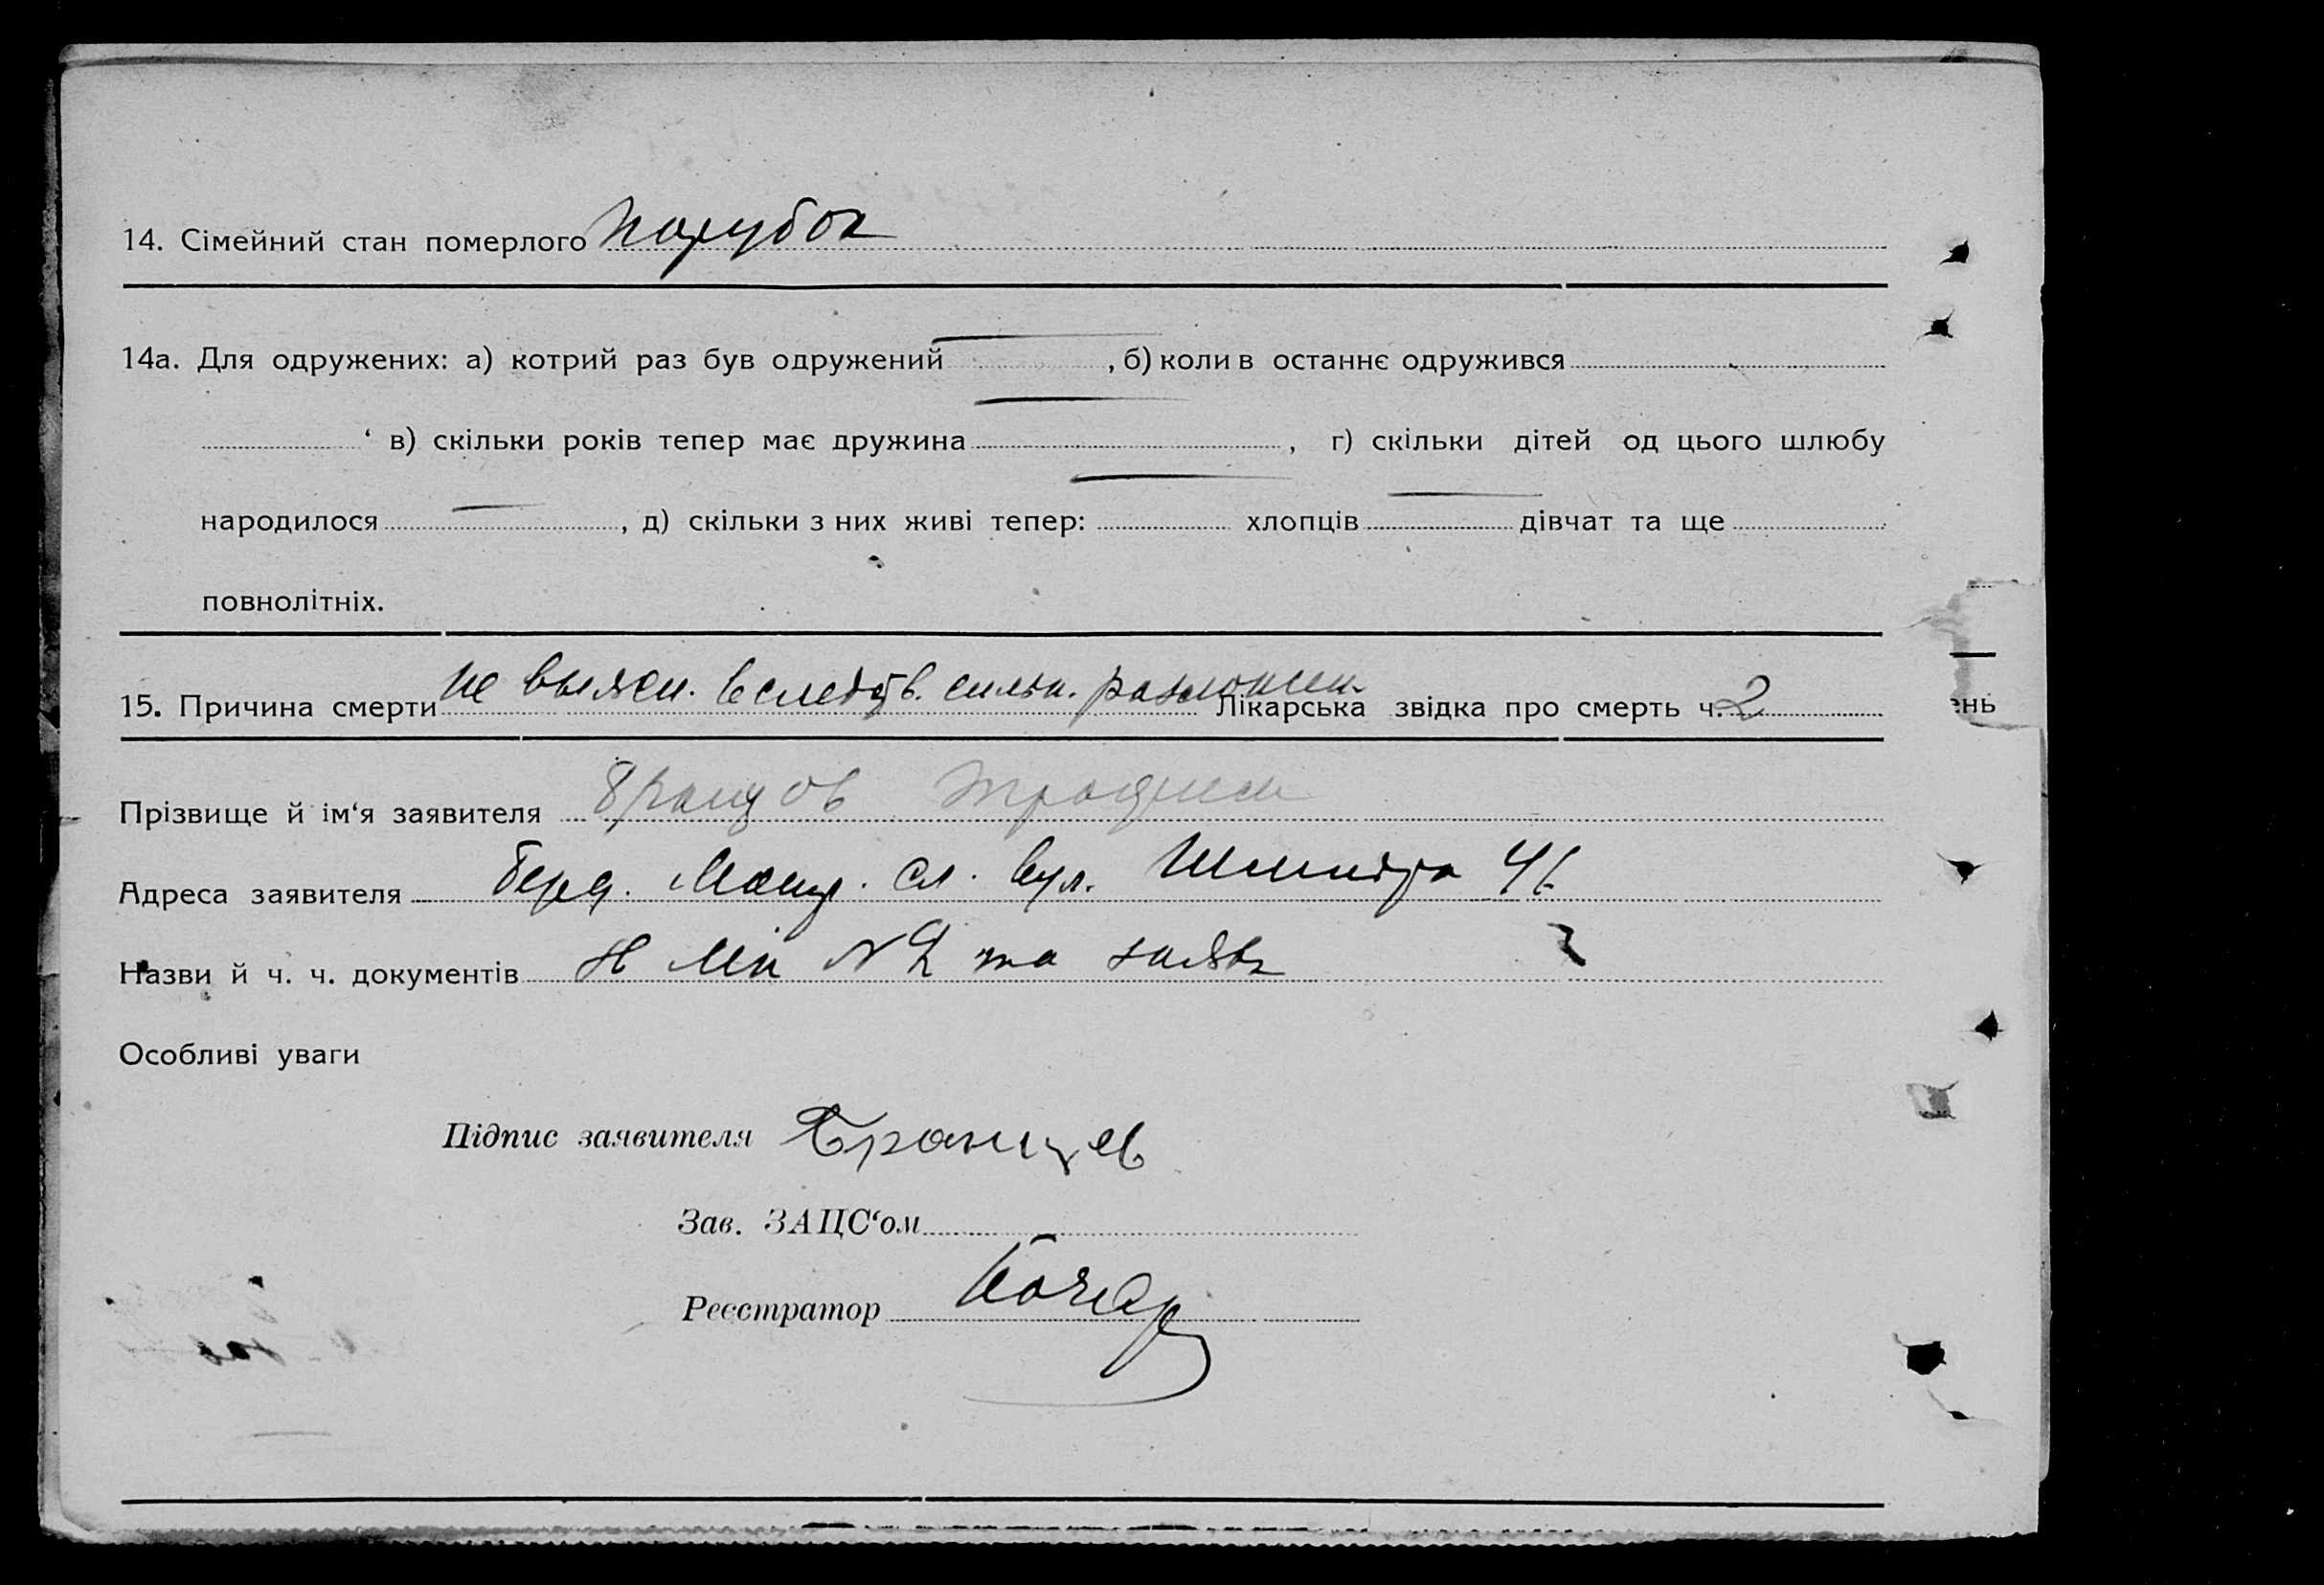 14. Сімейний стан померлого Парубок
14а. Для одружених: а) котрий раз був одружений , б) коли в останнє одружився
‘ в) скільки років тепер має дружина , г) скільки дітей од цього шлюбу
народилося , д) скільки з них живі тепер: хлопців дівчат та ще
повнолітніх.
15. Причина смерти не выясн. вследств. сильн. разложен. Лікарська звідка про смерть ч. 2
ень
Прізвище й ім‘я заявителя
Адреса заявителя вул. Шмидта
Назви й ч. ч. документів № 2 та заява
Особливі уваги
Підпис заявителя Бранцев
Зав. ЗАЦС‘ом
Реєстратор